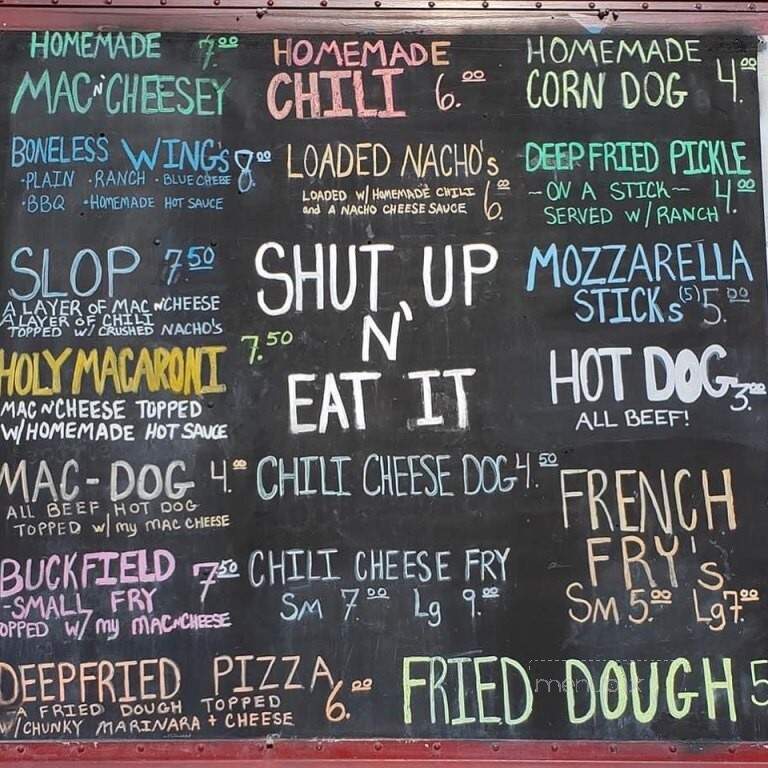 HOMEMADE 7.00
MAC N' CHEESEY
HOMEMADE
CHILI 6.00
HOMEMADE
CORN DOG 4.00
BONELESS WING's 8.00
·PLAIN ·RANCH ·BLUE CHEESE
·BBQ ·HOMEMADE HOT SAUCE
LOADED NACHO's
LOADED W/ HOMEMADE CHILI
and A NACHO CHEESE SAUCE 6.00
DEEP FRIED PICKLE
- ON A STICK - 4.00
SERVED W/ RANCH
SLOP 7.50
A LAYER OF MAC N CHEESE
A LAYER OF CHILI
TOPPED W/ CRUSHED NACHO's
SHUT UP
N'
EAT IT
MOZZARELLA
STICKs (5) 5.00
HOLY MACARONI 7.50
MAC N CHEESE TOPPED
W/HOMEMADE HOT SAUCE
HOT DOG 3.00
ALL BEEF!
MAC-DOG 4.00
ALL BEEF HOT DOG
TOPPED w/ my MAC CHEESE
CHILI CHEESE DOG 4.50
FRENCH
FRY's
Sm 5.00 Lg 7.00
BUCKFIELD 7.50
-SMALL FRY
OPPED W/ my MAC N CHEESE
CHILI CHEESE FRY
Sm 7.00 Lg 9.00
DEEPFRIED PIZZA 6.00
A FRIED DOUGH TOPPED
W/CHUNKY MARINARA + CHEESE
FRIED DOUGH 5